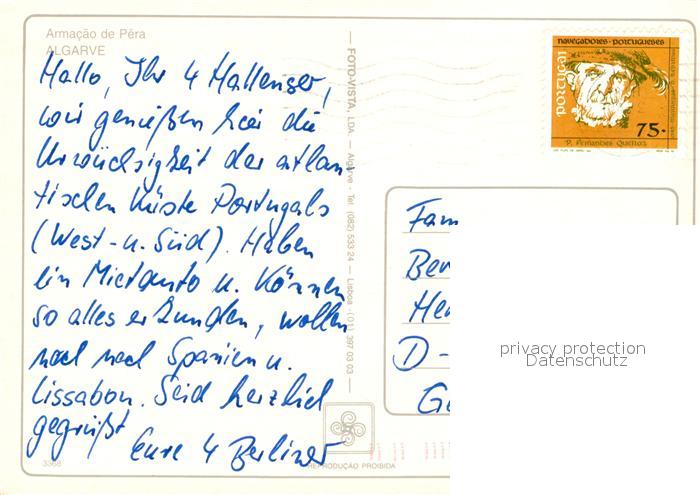 Armação de Pêra
ALGARVE
Hallo, Ihr 4 Hallenser,
wir genießen hier die
Urwüchsigkeit der atlan-
tischen Küste Portugals
(West- u. Süd). Haben
ein Mietauto u. können
so alles erkunden, wollen
noch nach Spanien u.
Lissabon. Seid herzlich
gegrüßt
Eure 4 Berliner
3368
REPRODUÇÃO PROIBIDA
FOTO-VISTA, LDA — Algarve - Tel. (082) 533 24 — Lisboa - (01) 397 03 03
NAVEGADORES - PORTUGUESES
PORTUGAL
75.
P. Fernandes Queiroz
Fam
Ber
D-
privacy protection
Datenschutz